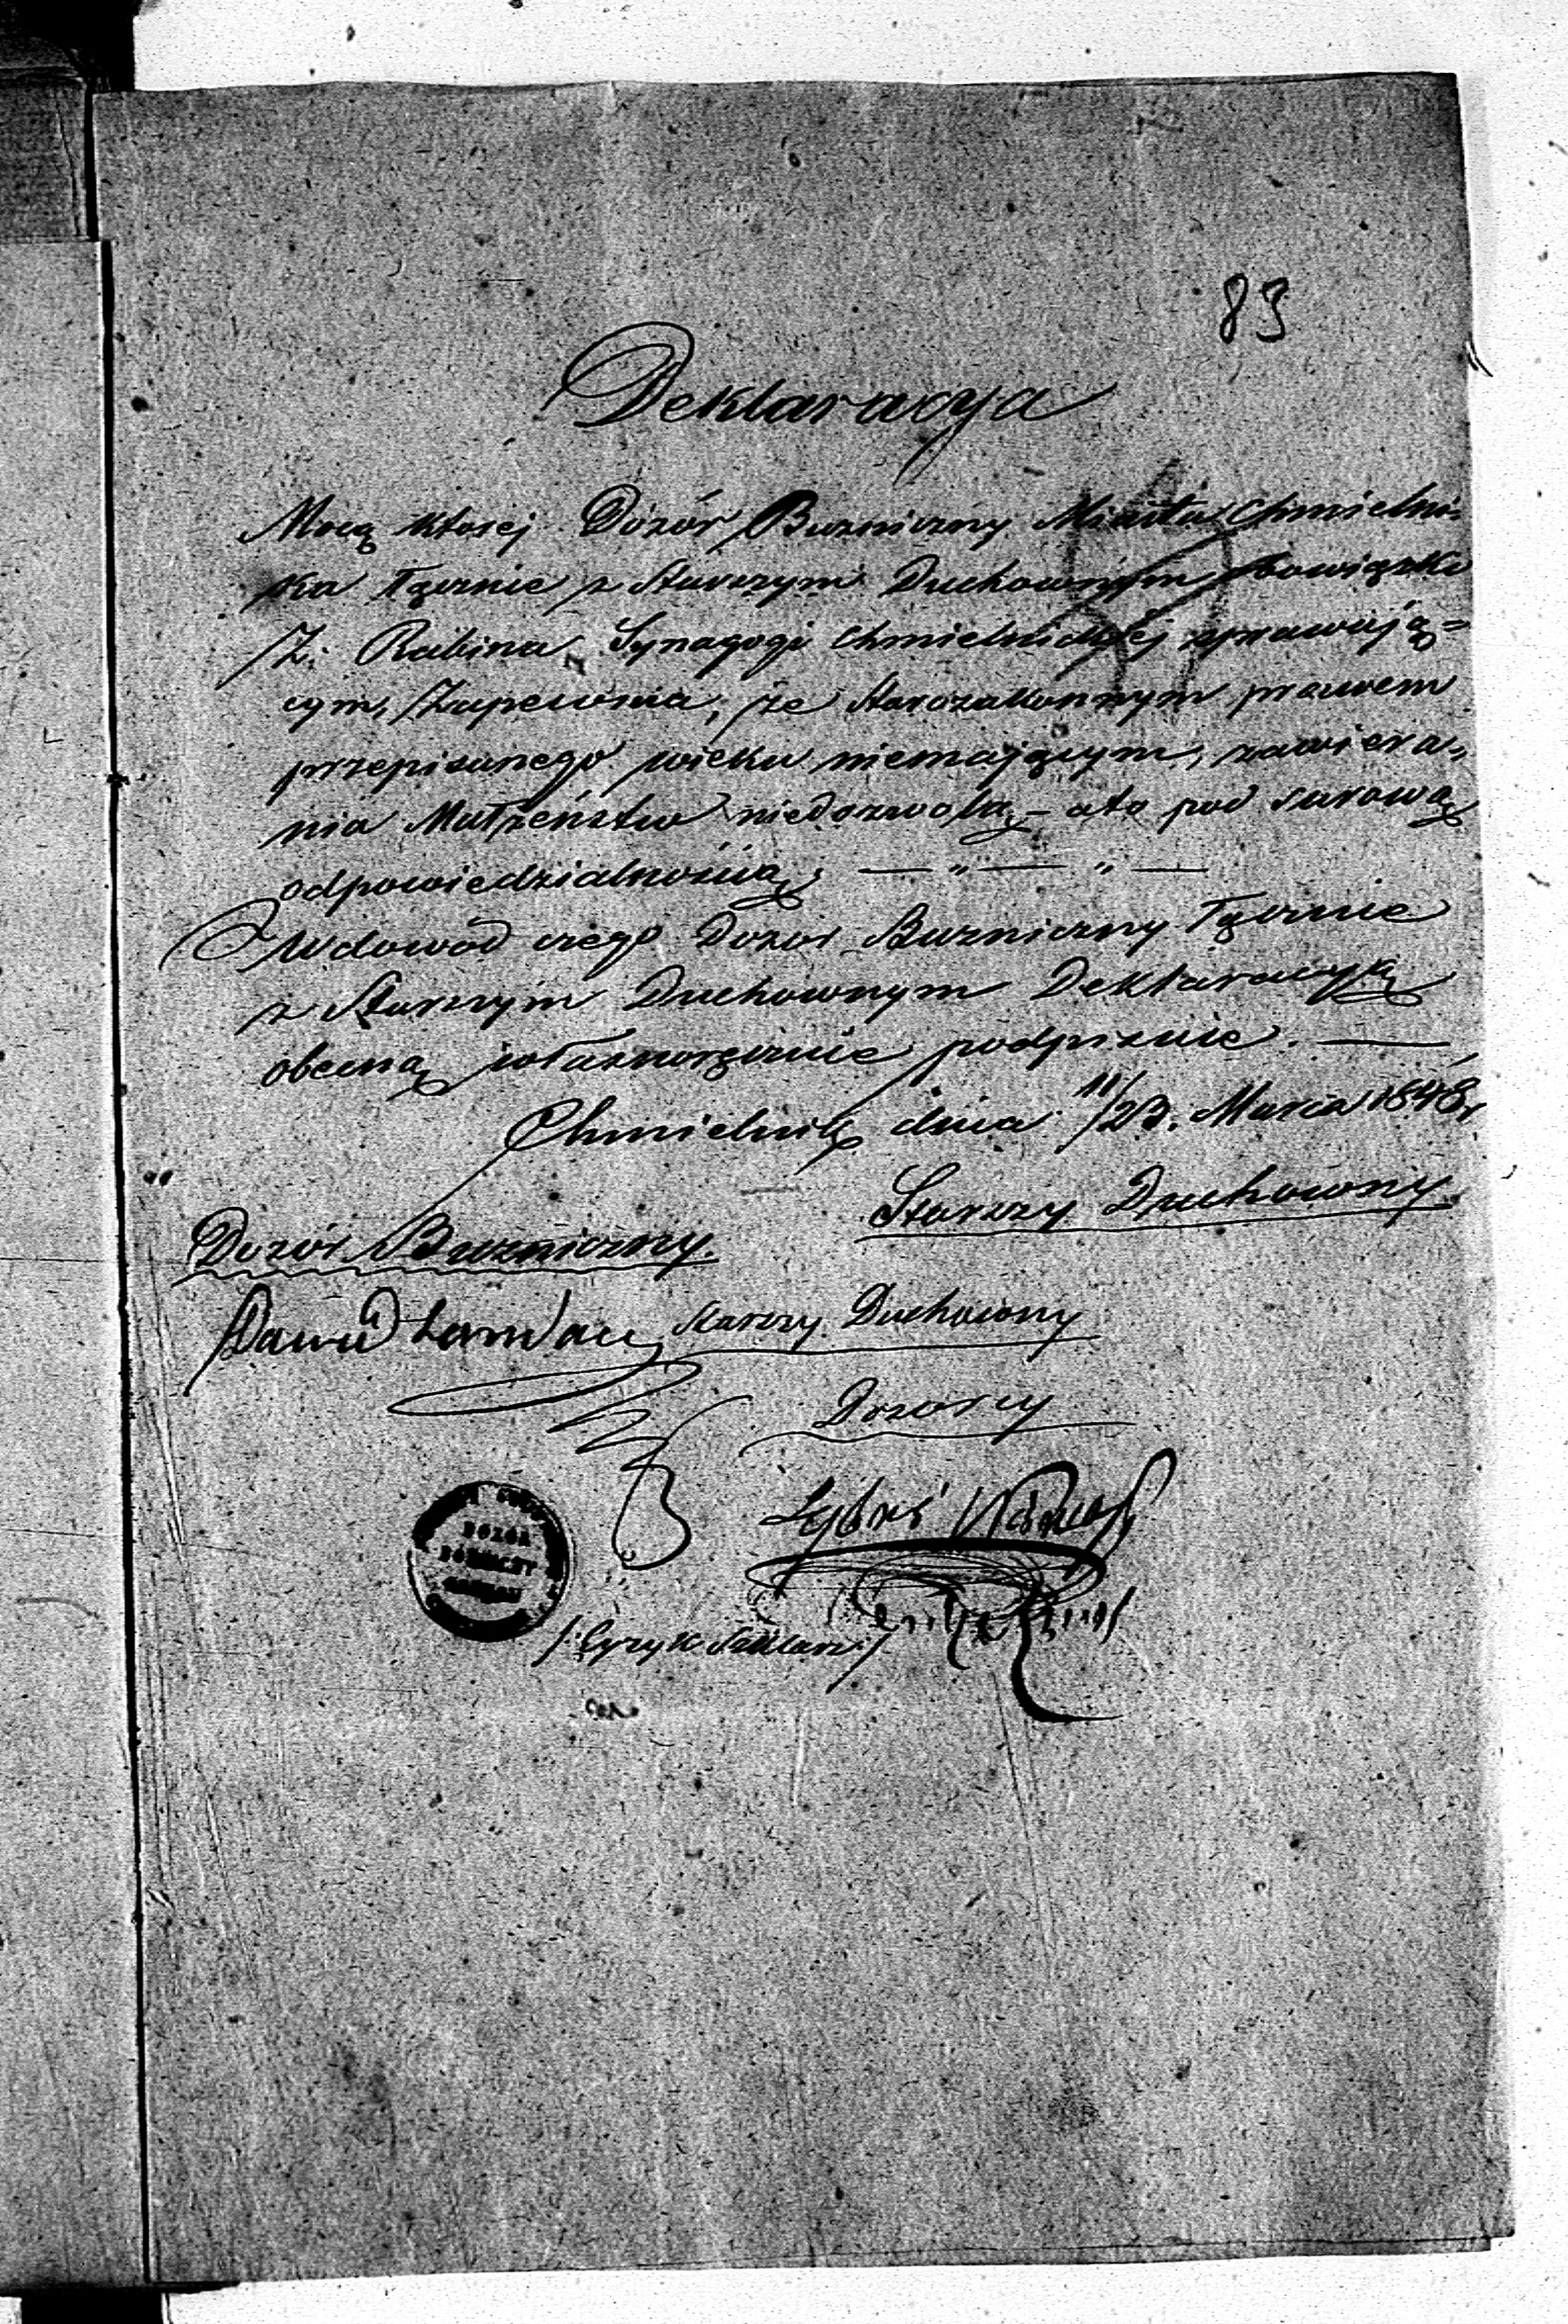 83
Deklaracya
Mocą ktorej Dozór Buzniczny Miasta Chmielni=
ka łącznie z Starszym Duchownym obowiązki
Z: Rabina Synagogi Chmielnickiej sprawują=
cym, Zapewnia, że Starozakonnym prawem
przepisanego wieku niemającym, zawiera=
nia Małżeństw niedozwolą – a to pod surową
odpowiedzialnością; — „ — „ —
W dowód czego Dozor Buzniczny łącznie
z Starszym Duchownym Deklaracyą
obecną własnoręcznie podpisuie. —
Chmielnik dnia 11/23. Marca 1848 r
Starszy Duchowny
Dozór Buzniczny.
Dawid Landau starszy Duchowny
Dozorcy
DOZÓR